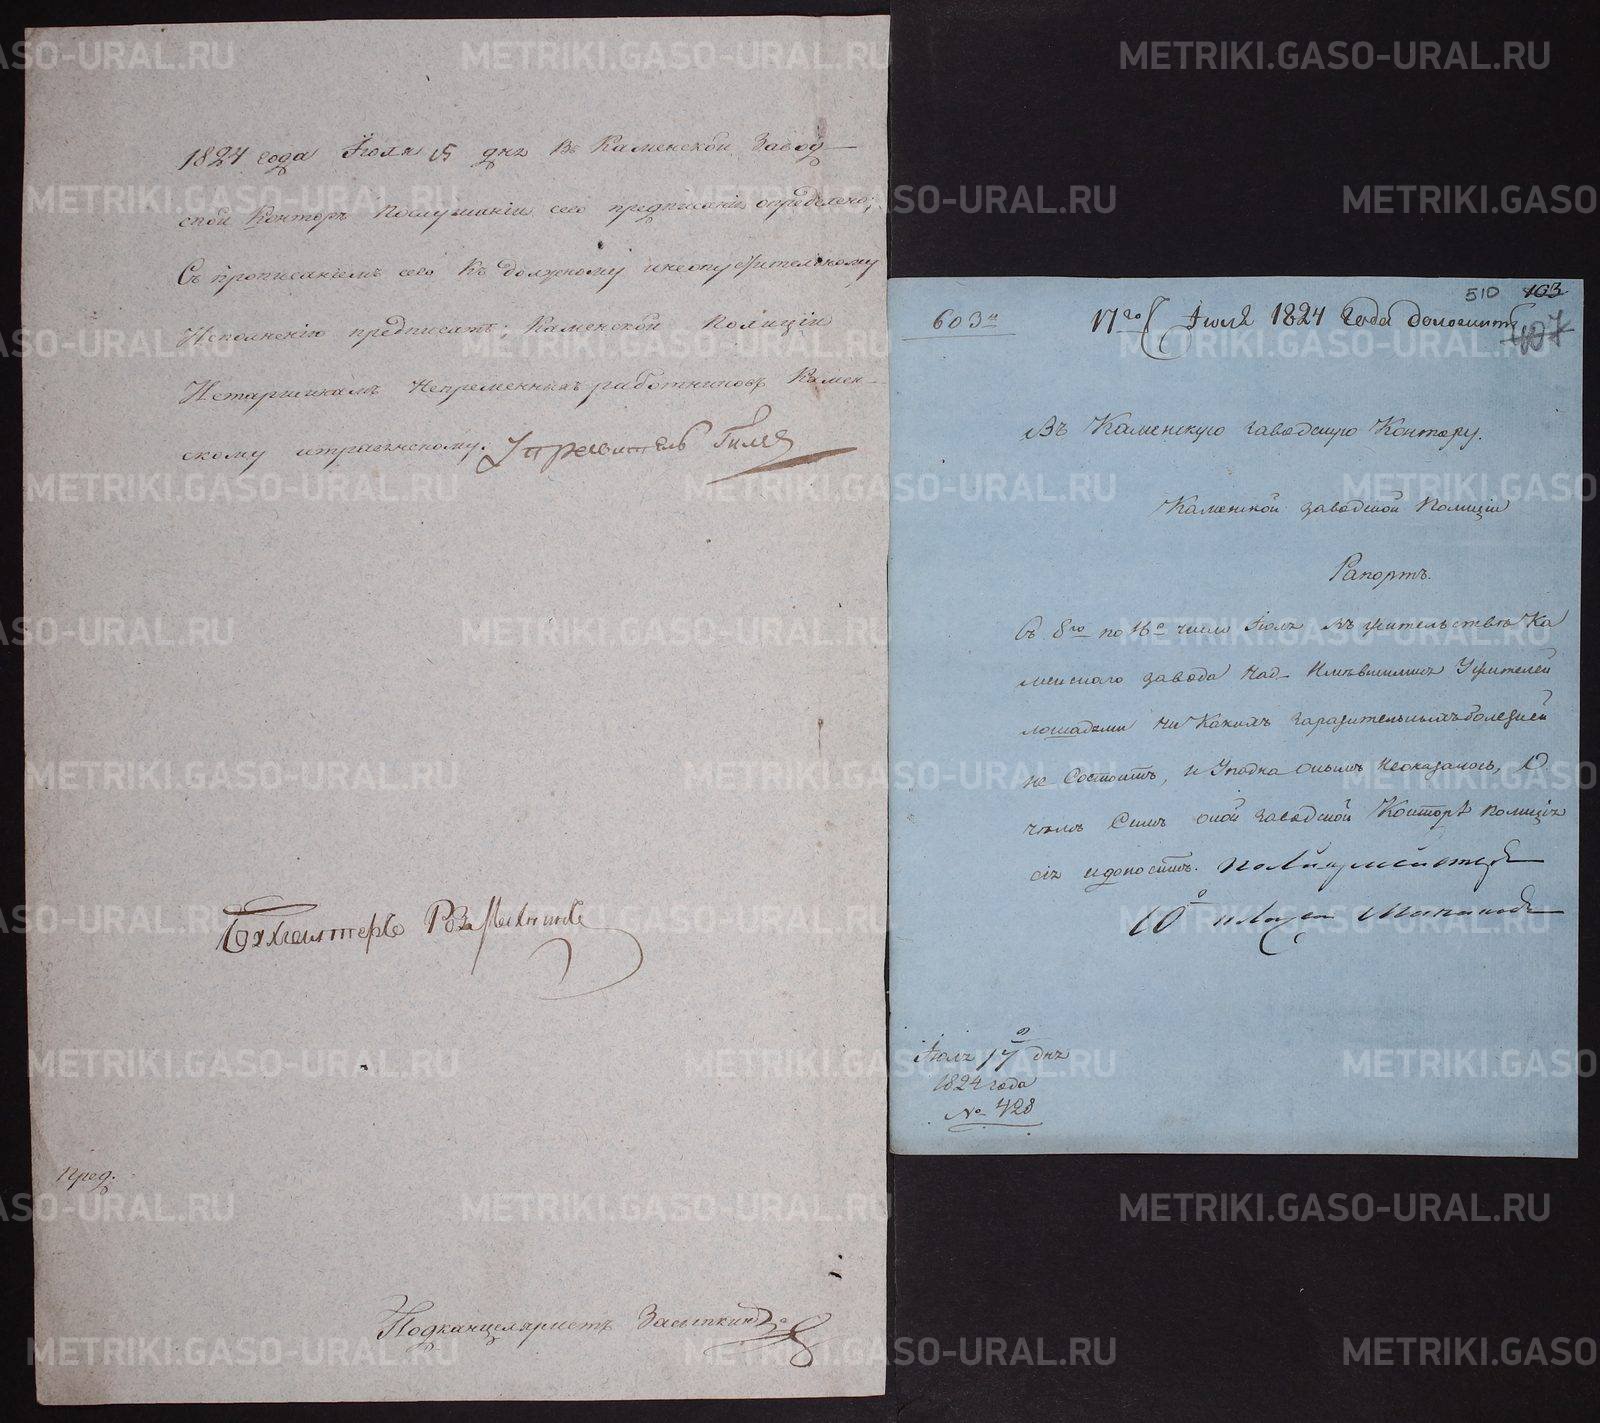 1824 года Іюля 15 дня Въ Каменской Завод-
ской Конторѣ Послушаніи сего предписанія определено;
Съ прописаніемъ сего Къ должному инеопустительному
Исполнению предписать; Каменской Полиціи
Истаршинамъ Непременныхъ работниковъ Камен-
скому Управитель
Бухгалтеръ
Пред.
Подканцеляристъ Засыпкинъ
510 103
603 17го Іюля 1824 Года 407
Въ Каменскую заводскую Контору.
Каменской заводской Полиціи
Рапортъ.
Съ 8го по 16е число Іюля въ жительствѣ Ка
менскаго завода Над Имѣвшимися Ужителей
лошадями Ни Какихъ заразительныхъ болезней
не Состоитъ, и Упадка онымъ Неоказалось, О
чемъ Симъ оной заводской Конторѣ полиція
сія идоноситъ. Полицмейстеръ
10го класса
Іюля 17 дня
1824 года
№ 428
METRIKI.GASO-URAL.RU